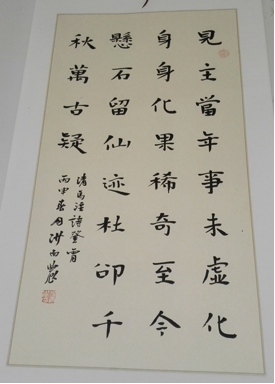 見主當年事未虛化
身身化果稀奇至今
懸石留仙迹杜卻千
秋萬古疑
清馬注詩登霄
丙申春月